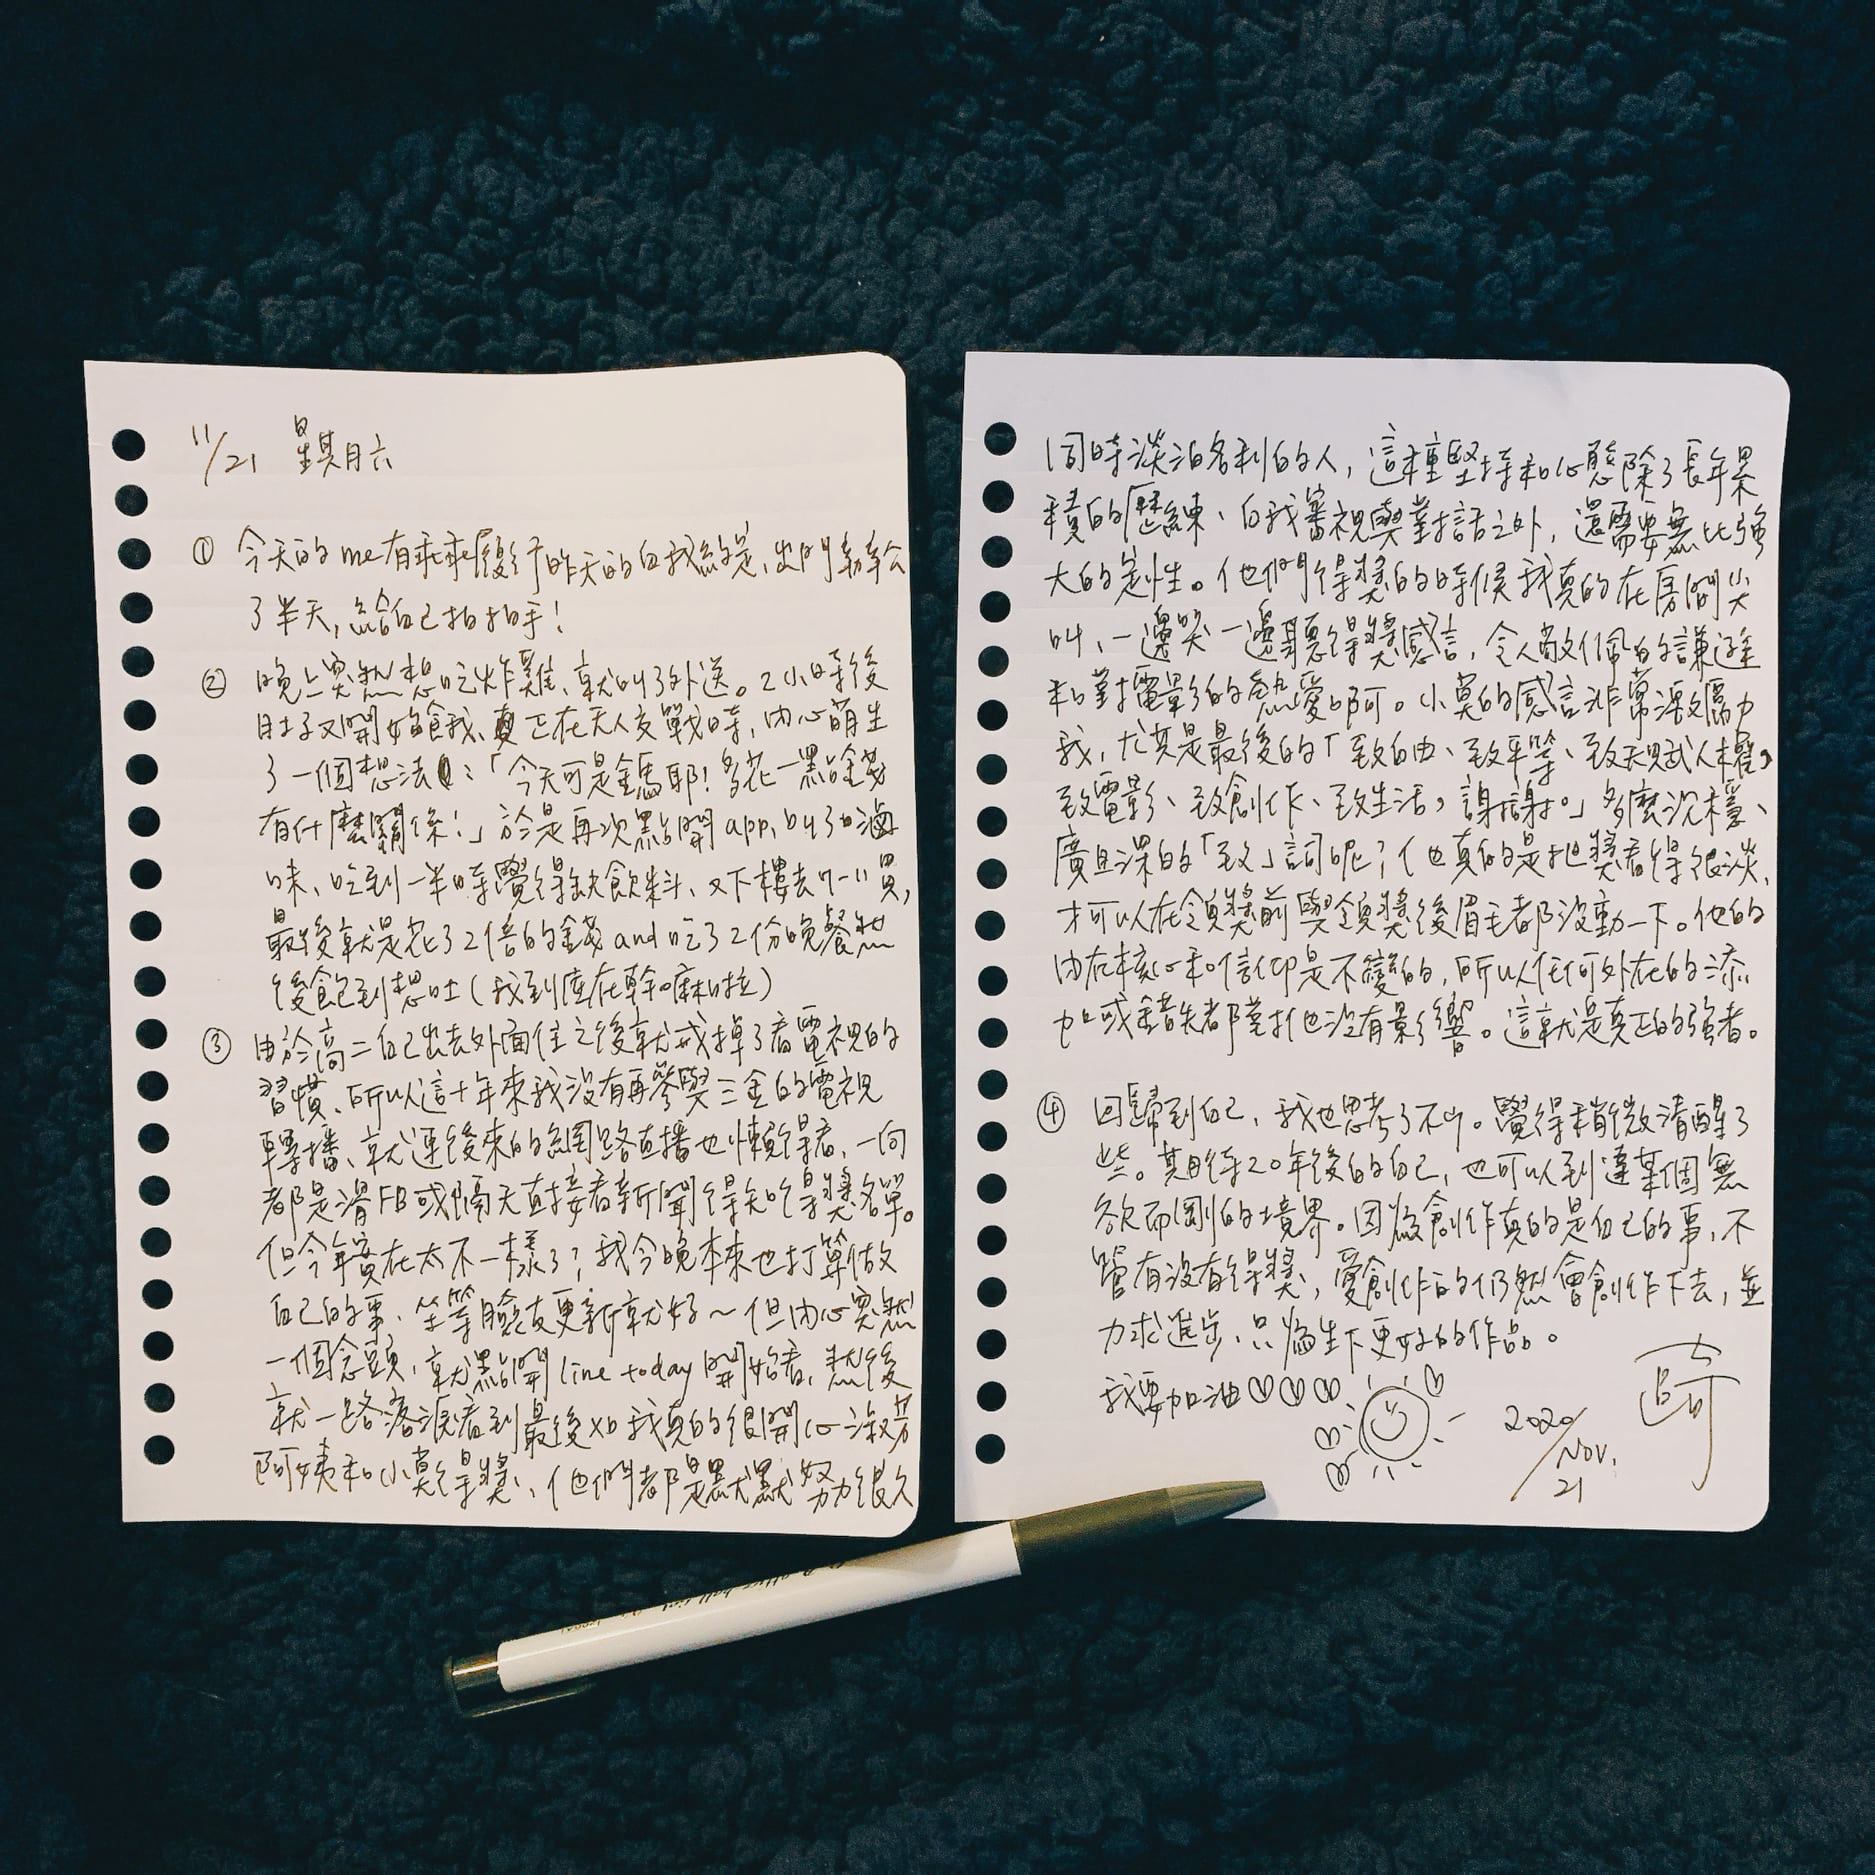 11/21 星期六
① 今天的me有乖乖履行昨天的自我約定、出門辦公
了半天，給自己拍拍手！
② 晚上突然想吃炸雞、就叫了外送。2小時後
肚子又開始餓我、正在天人交戰時，內心萌生
了一個想法：「今天可是金馬耶！多花一點錢
有什麼關係！」於是再次點開app，buy了滷
味、吃到一半時覺得缺飲料、又下樓去7-11買，
最後就是花了2倍的錢and吃了2份晚餐然
後飽到想吐（我到底在幹嘛啦）
③ 由於高二自己出去外面住之後就戒掉了看電視的
習慣、所以這十年來我沒有再參與三金的電視
轉播、就連後來的網路直播也懶得看、一向
都是滑FB或隔天直接看新聞得知得獎名單。
但今年實在太不一樣了；我今晚本來也打算做
自己的事、坐等臉友更新就好～但內心突然
一個念頭，就點開line today開始看，然後
就一路落淚看到最後XD 我真的很開心淑芳
阿姨和小莫得獎、他們都是默默努力很久
同時淡泊名利的人，這種堅持和心態除了長年累
積的歷練、自我審視與對話之外，還需要無比強
大的定性。他們得獎的時候我真的在房間尖
叫、一邊哭一邊聽得獎感言，令人敬佩的謙遜
和對電影的熱愛啊。小莫的感言非常激勵
我，尤其是最後的「致自由、致平等、致天賦人權，
致電影、致創作、致生活，謝謝。」多麼沉穩、
廣且深的「致」詞呢；他真的是把獎看得很淡，
才可以在領獎前與領獎後眉毛都沒動一下。他的
內在核心和信仰是不變的，所以任何外在的添
加或錯失都對他沒有影響。這就是真正的強者。
④ 回歸到自己，我也思考了不少。覺得稍微清醒了
些。期待20年後的自己，也可以到達某個無
欲而剛的境界。因為創作真的是自己的事，不
管有沒有得獎，愛創作的仍然會創作下去，並
力求進步、只為生下更好的作品。
我要加油
2020/Nov. 21